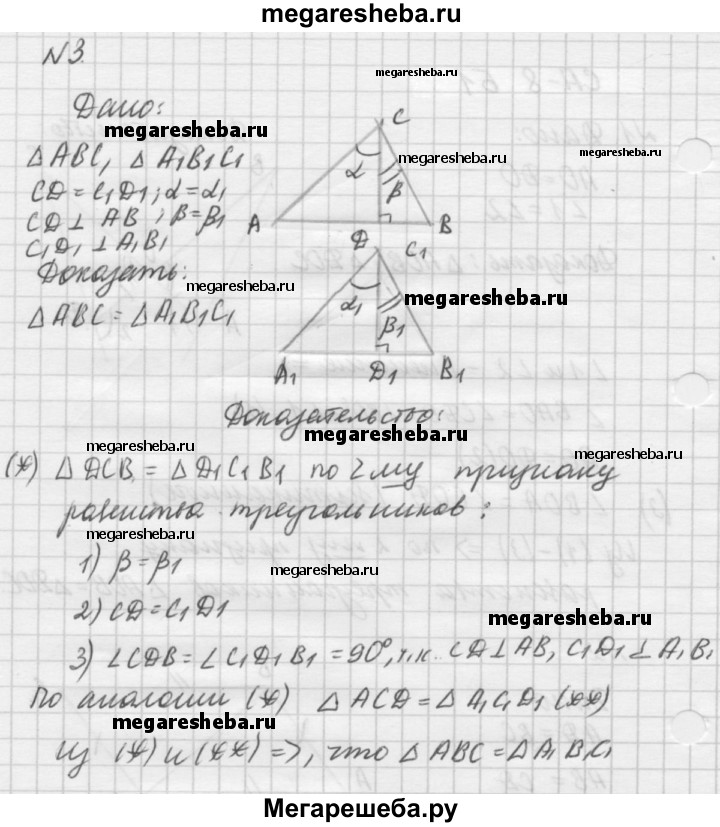 megaresheba.ru
N3.
megaresheba.ru
Дано:
megaresheba.ru
△ABC, △A₁B₁C₁
CD = C₁D₁; α = α₁
CD ⊥ AB; β = β₁
C₁D₁ ⊥ A₁B₁
Доказать:
megaresheba.ru
△ABC = △A₁B₁C₁
C
megaresheba.ru
α
β
A
B
D
C₁
megaresheba.ru
α₁
β₁
A₁
D₁
B₁
Доказательство:
megaresheba.ru
megaresheba.ru
megaresheba.ru
(*) △DCB = △D₁C₁B₁ по 2му признаку
равенства треугольников:
megaresheba.ru
1) β = β₁
megaresheba.ru
2) CD = C₁D₁
megaresheba.ru
3) ∠CDB = ∠C₁D₁B₁ = 90°, т.к. CD ⊥ AB, C₁D₁ ⊥ A₁B₁
По аналогии (*) △ACD = △A₁C₁D₁ (**)
megaresheba.ru
Из (*) и (**) =>, что △ABC = △A₁B₁C₁
Мегарешеба.ру